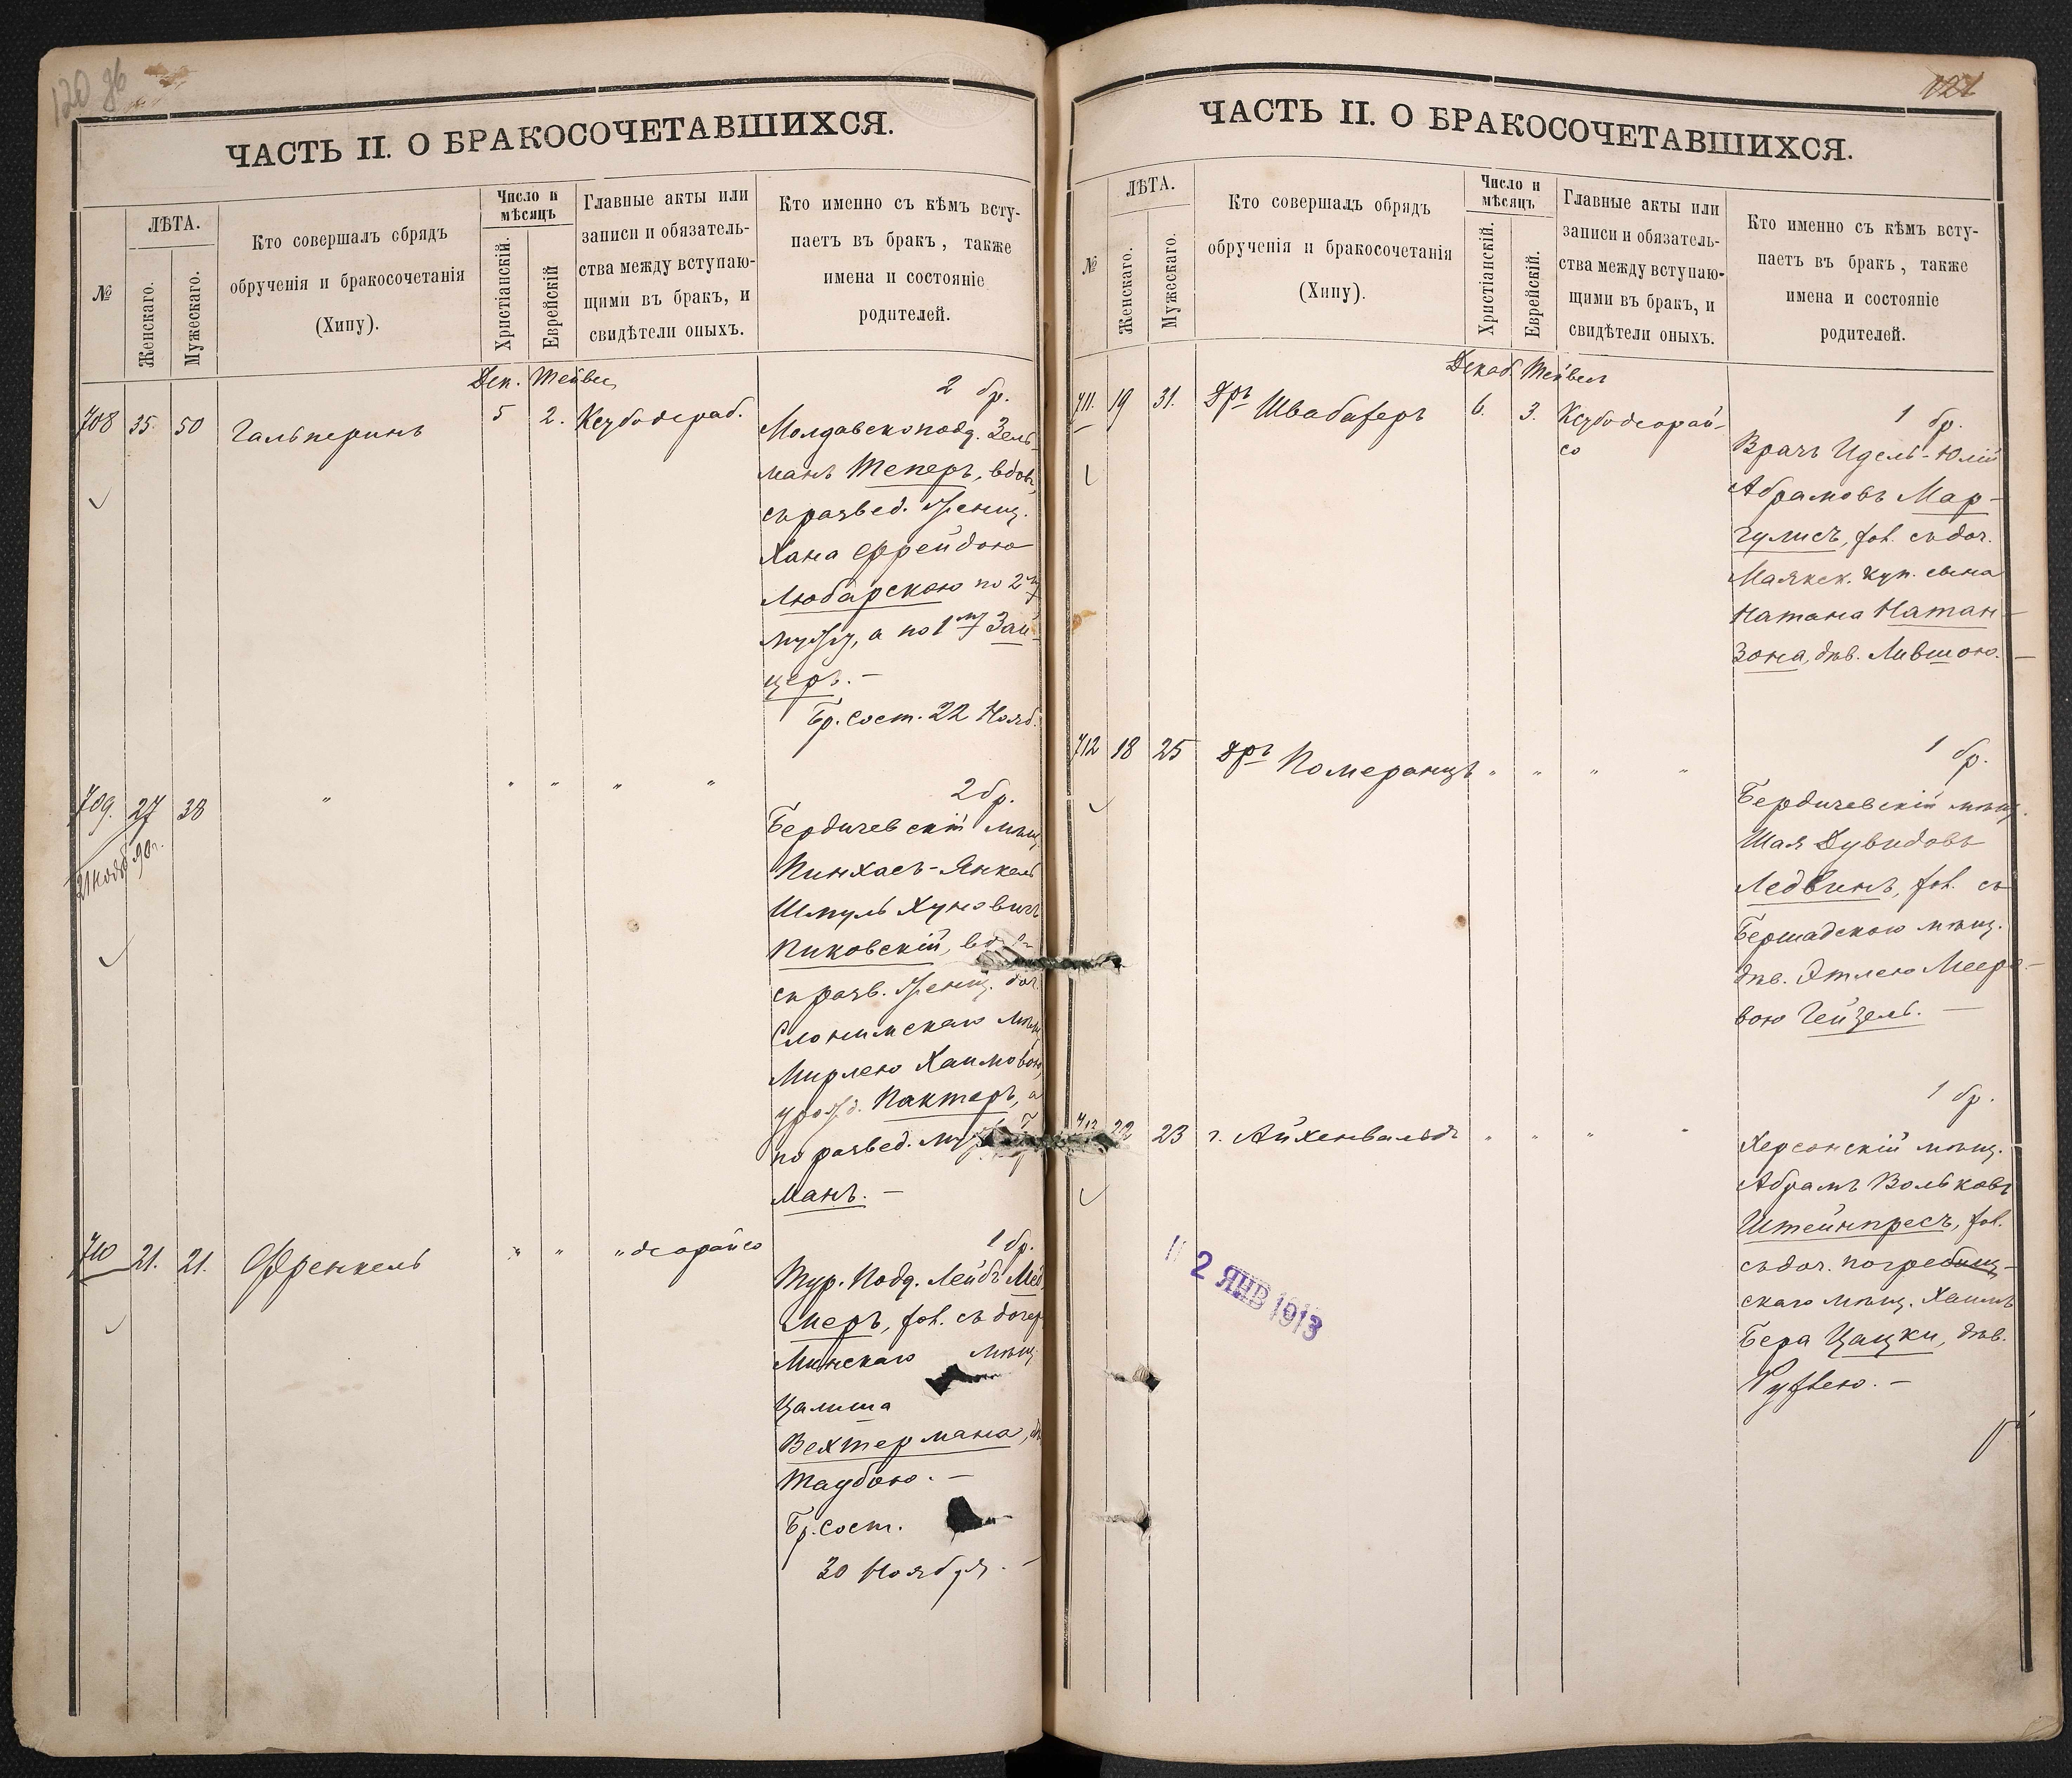 120 об
ЧАСТЬ II. О БРАКОСОЧЕТАВШИХСЯ.
№
ЛѢТА.
Женскаго.
Мужескаго.
Кто совершалъ обрядъ
обрученія и бракосочетанія
(Хипу).
Число и
мѣсяцъ
Христіанскій.
Еврейскій
Главные акты или
записи и обязатель-
ства между вступаю-
щими въ бракъ, и
свидѣтели оныхъ.
Кто именно съ кѣмъ всту-
паетъ въ бракъ, также
имена и состояніе
родителей.
Дек. Тейвес
708 35 50 Гальперинъ 5 2. Ксубодераб.
2 бр.
Молдавскоподд. Зель-
манъ Теперъ, вдов.
съ развед. женщ.
Хана Фрейдою
Любарскою по 2му
мужу, а по 1му Зай-
церъ.—
Бр. сост. 22 Нояб.
709. 27 38 " " " " "
21 нояб 90г.
2 бр.
Бердичевскій мѣщ.
Пинхасъ-Янкель
Шмуль Хуновичъ
Пиковскій,
съ разв. женщ. доч.
Слонимскаго мѣщ.
Мирлею Хаимовою,
урожд. Пактеръ, а
по развед.
манъ.—
710 21. 21. Френкель " " " деорайсо
1 бр.
Тур. Подд. Лейбъ
меръ, хол. съ дочер.
Минскаго мѣщ.
Цалита
Вехтермана,
Таубою.—
Бр. сост.
30 Ноября.—
121
ЧАСТЬ II. О БРАКОСОЧЕТАВШИХСЯ.
№
ЛѢТА.
Женскаго.
Мужескаго.
Кто совершалъ обрядъ
обрученія и бракосочетанія
(Хипу).
Число и
мѣсяцъ
Христіанскій.
Еврейскій.
Главные акты или
записи и обязатель-
ства между вступаю-
щими въ бракъ, и
свидѣтели оныхъ.
Кто именно съ кѣмъ всту-
паетъ въ бракъ, также
имена и состояніе
родителей.
Декаб Тейвес
711. 19 31. Дръ Швабахеръ 6. 3. Ксубодеорай-
со
1 бр.
Врачъ Идель-Юлій
Абрамовъ Мар-
гулисъ, хол. съ доч.
Маякск. куп. сына
Натана Натан-
зона, дѣв. Лившою.—
712 18 25 Дръ Померанцъ " " " "
1 бр.
Бердичевскій мѣщ.
Шая Дувидовъ
Ледвинъ, хол. съ
Бершадскою мѣщ.
дѣв. Этлею Мееро-
вою Гейзель.—
22 23 г. Айхенвальдъ " " " "
1 бр.
Херсонскій мѣщ.
Абрамъ Вольковъ
Штейнпресъ, хол.
съ доч. погребищ-
скаго мѣщ. Хаимъ
Бера Цацки, дѣв.
Рухлею.—
2 ЯНВ 1913